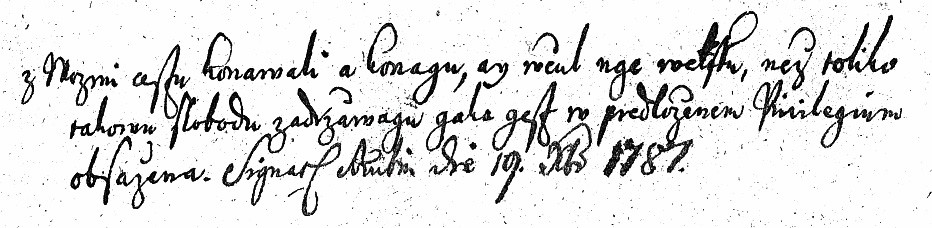 z Wozmi cestu konawali a konagu, ay wčul nge welku, než toliko
takowu slobodu zadržawagu gaka gest w predloženem Privilegium
obsažena. Signat die 19. Xbr 1787.